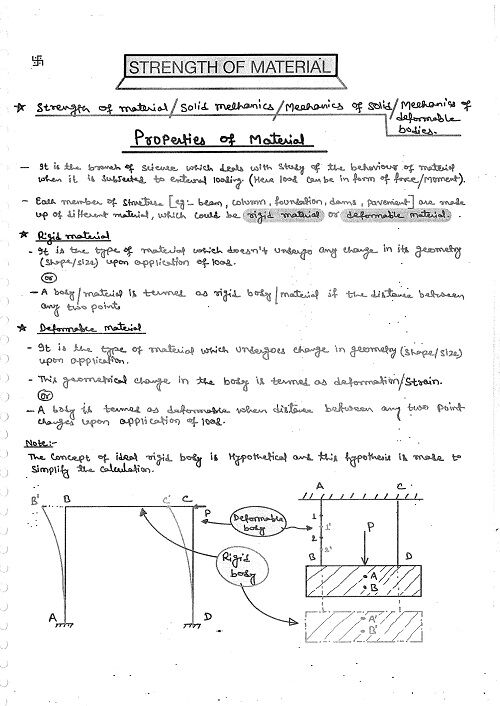 卐
STRENGTH OF MATERIAL
★ Strength of material / Solid mechanics / Mechanics of solid / Mechanics of
deformable
bodies.
Properties of Material
— It is the branch of science which deals with study of the behaviour of material
when it is subjected to external loading (Here load can be in form of force/moment).
- Each member of structure [eg:- beam, column, foundation, dams, pavement] are made
up of different material, which could be rigid material or deformable material.
★ Rigid material
- It is the type of material which doesn't undergo any change in its geometry
(shape/size) upon application of load.
or
— A body/material is termed as rigid body/material if the distance between
any two points
★ Deformable material
- It is the type of material which undergoes change in geometry (shape/size)
upon application.
- This geometrical change in the body is termed as deformation/strain.
or
— A body is termed as deformable when distance between any two point
changes upon application of load.
Note:-
The concept of ideal rigid body is Hypothetical and this hypothesis is made to
simplify the calculation.
B' B C' C
P
A D
Deformable
body
Rigid
body
A C
1
1'
2
2'
P
B D
A
B
A'
B'